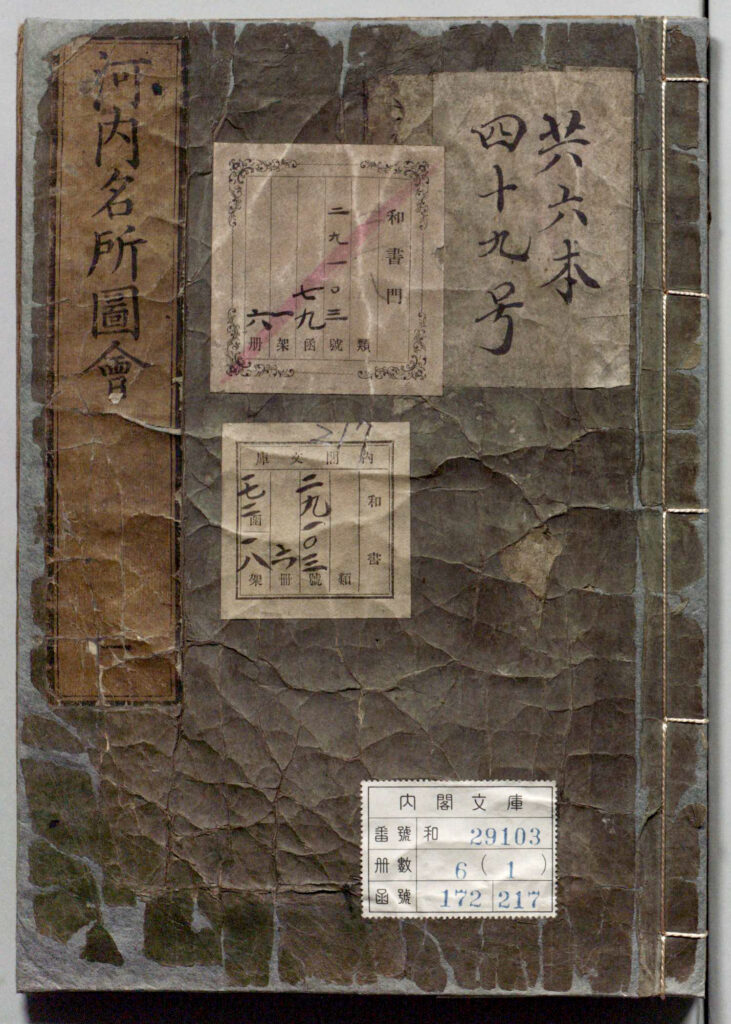 共六本
四十九号
和書門
類
二九一〇三
號
七九
函
一
架
六
册
河内名所圖會
一
217
内閣文庫
和書
類
二九一〇三
號
六
冊
七二
函
一八
架
内閣文庫
番號 和 29103
册數 6 ( 1 )
函號 172 217